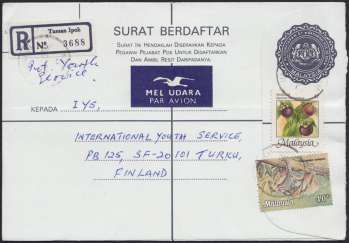 Taman Ipoh
R
No. 3688
Int. Youth
Service.
SURAT BERDAFTAR
SURAT INI HENDAKLAH DISERAHKAN KEPADA
PEGAWAI PEJABAT POS UNTUK DIDAFTARKAN
DAN AMBIL RESIT DARIPADANYA.
MEL UDARA
PAR AVION
KEPADA I YS,
INTERNATIONAL YOUTH SERVICE,
PB 125, SF-20101 TURKU,
FINLAND
Malaysia
Malaysia 40c